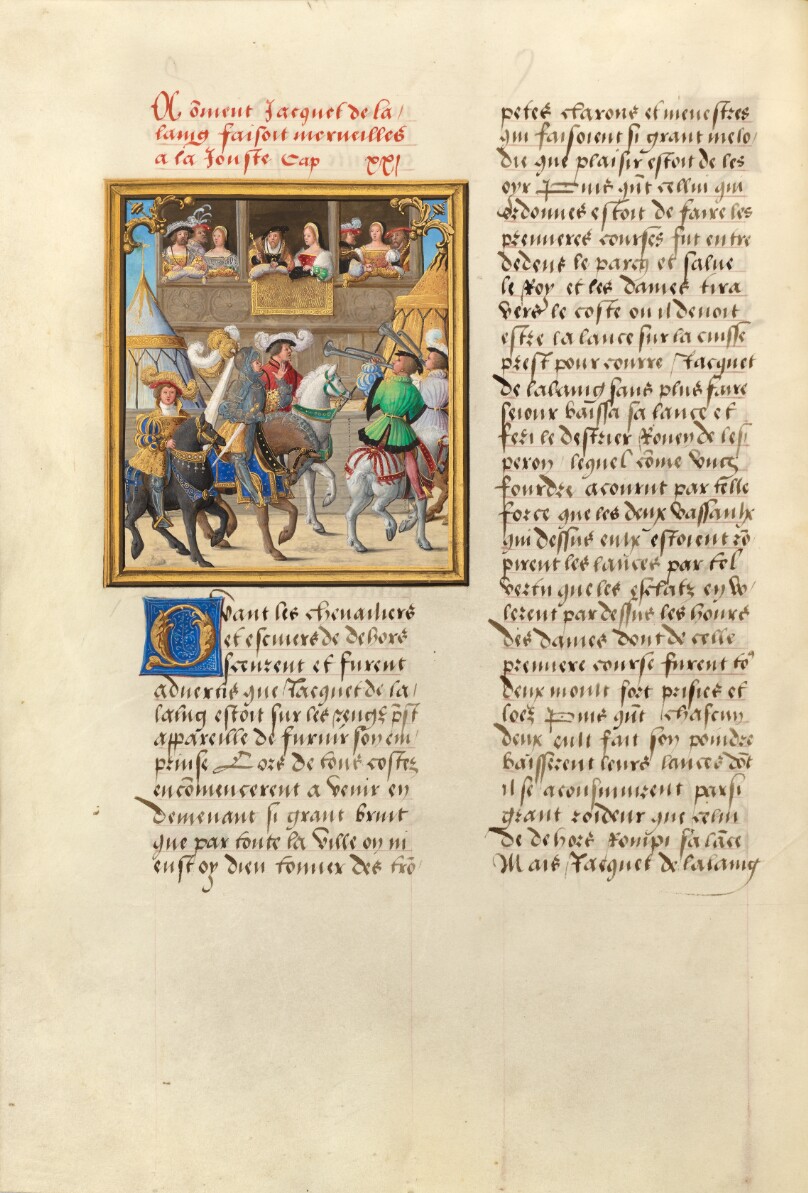 Cõment Jacquet de la
laing faisoit merveilles
a la Jouste Cap xxj
Quant les chevailiers
et escuiers de dehors
sceurent et furent
advertis que Jacquet de la
laing estoit sur les rengz p̃st
appareille de furnir son em
prinse Lors de tous costez
encõmencerent a venir en
demenant si grant bruit
que par toute la ville on ni
eust oy dieu tonner des trõ
petes clarons et menestres
qui faisoient si grant melo
die que plaisir estoit de les
oyr Puis qũt cellui qui
ordonnes estoit de faire les
premieres courses fut entre
dedens le parcq et salue
le Roy et les dames tira
vers le coste ou il devoit
estre la lance sur la cuisse
prest pour courre Jacquet
de lalaing sans plus faire
seiour baissa sa lance et
feri le destrier Roney de les
peron lequel cõme ung
fourdre acourut par telle
force que les deux vassaulx
qui dessus eulx estoient rõ
pirent les lances par tel
vertu que les esclatz en vo
lerent par dessus les hours
des dames dont de celle
premiere course furent to9
deux moult fort prisies et
loez Puis qũt chascun
deux eult fait son poindre
baisserent leurs lances dõt
il se aconsuiuirent par si
grant roideur que celui
de dehors Rompi sa lãce
Mais Jacquet de lalaing